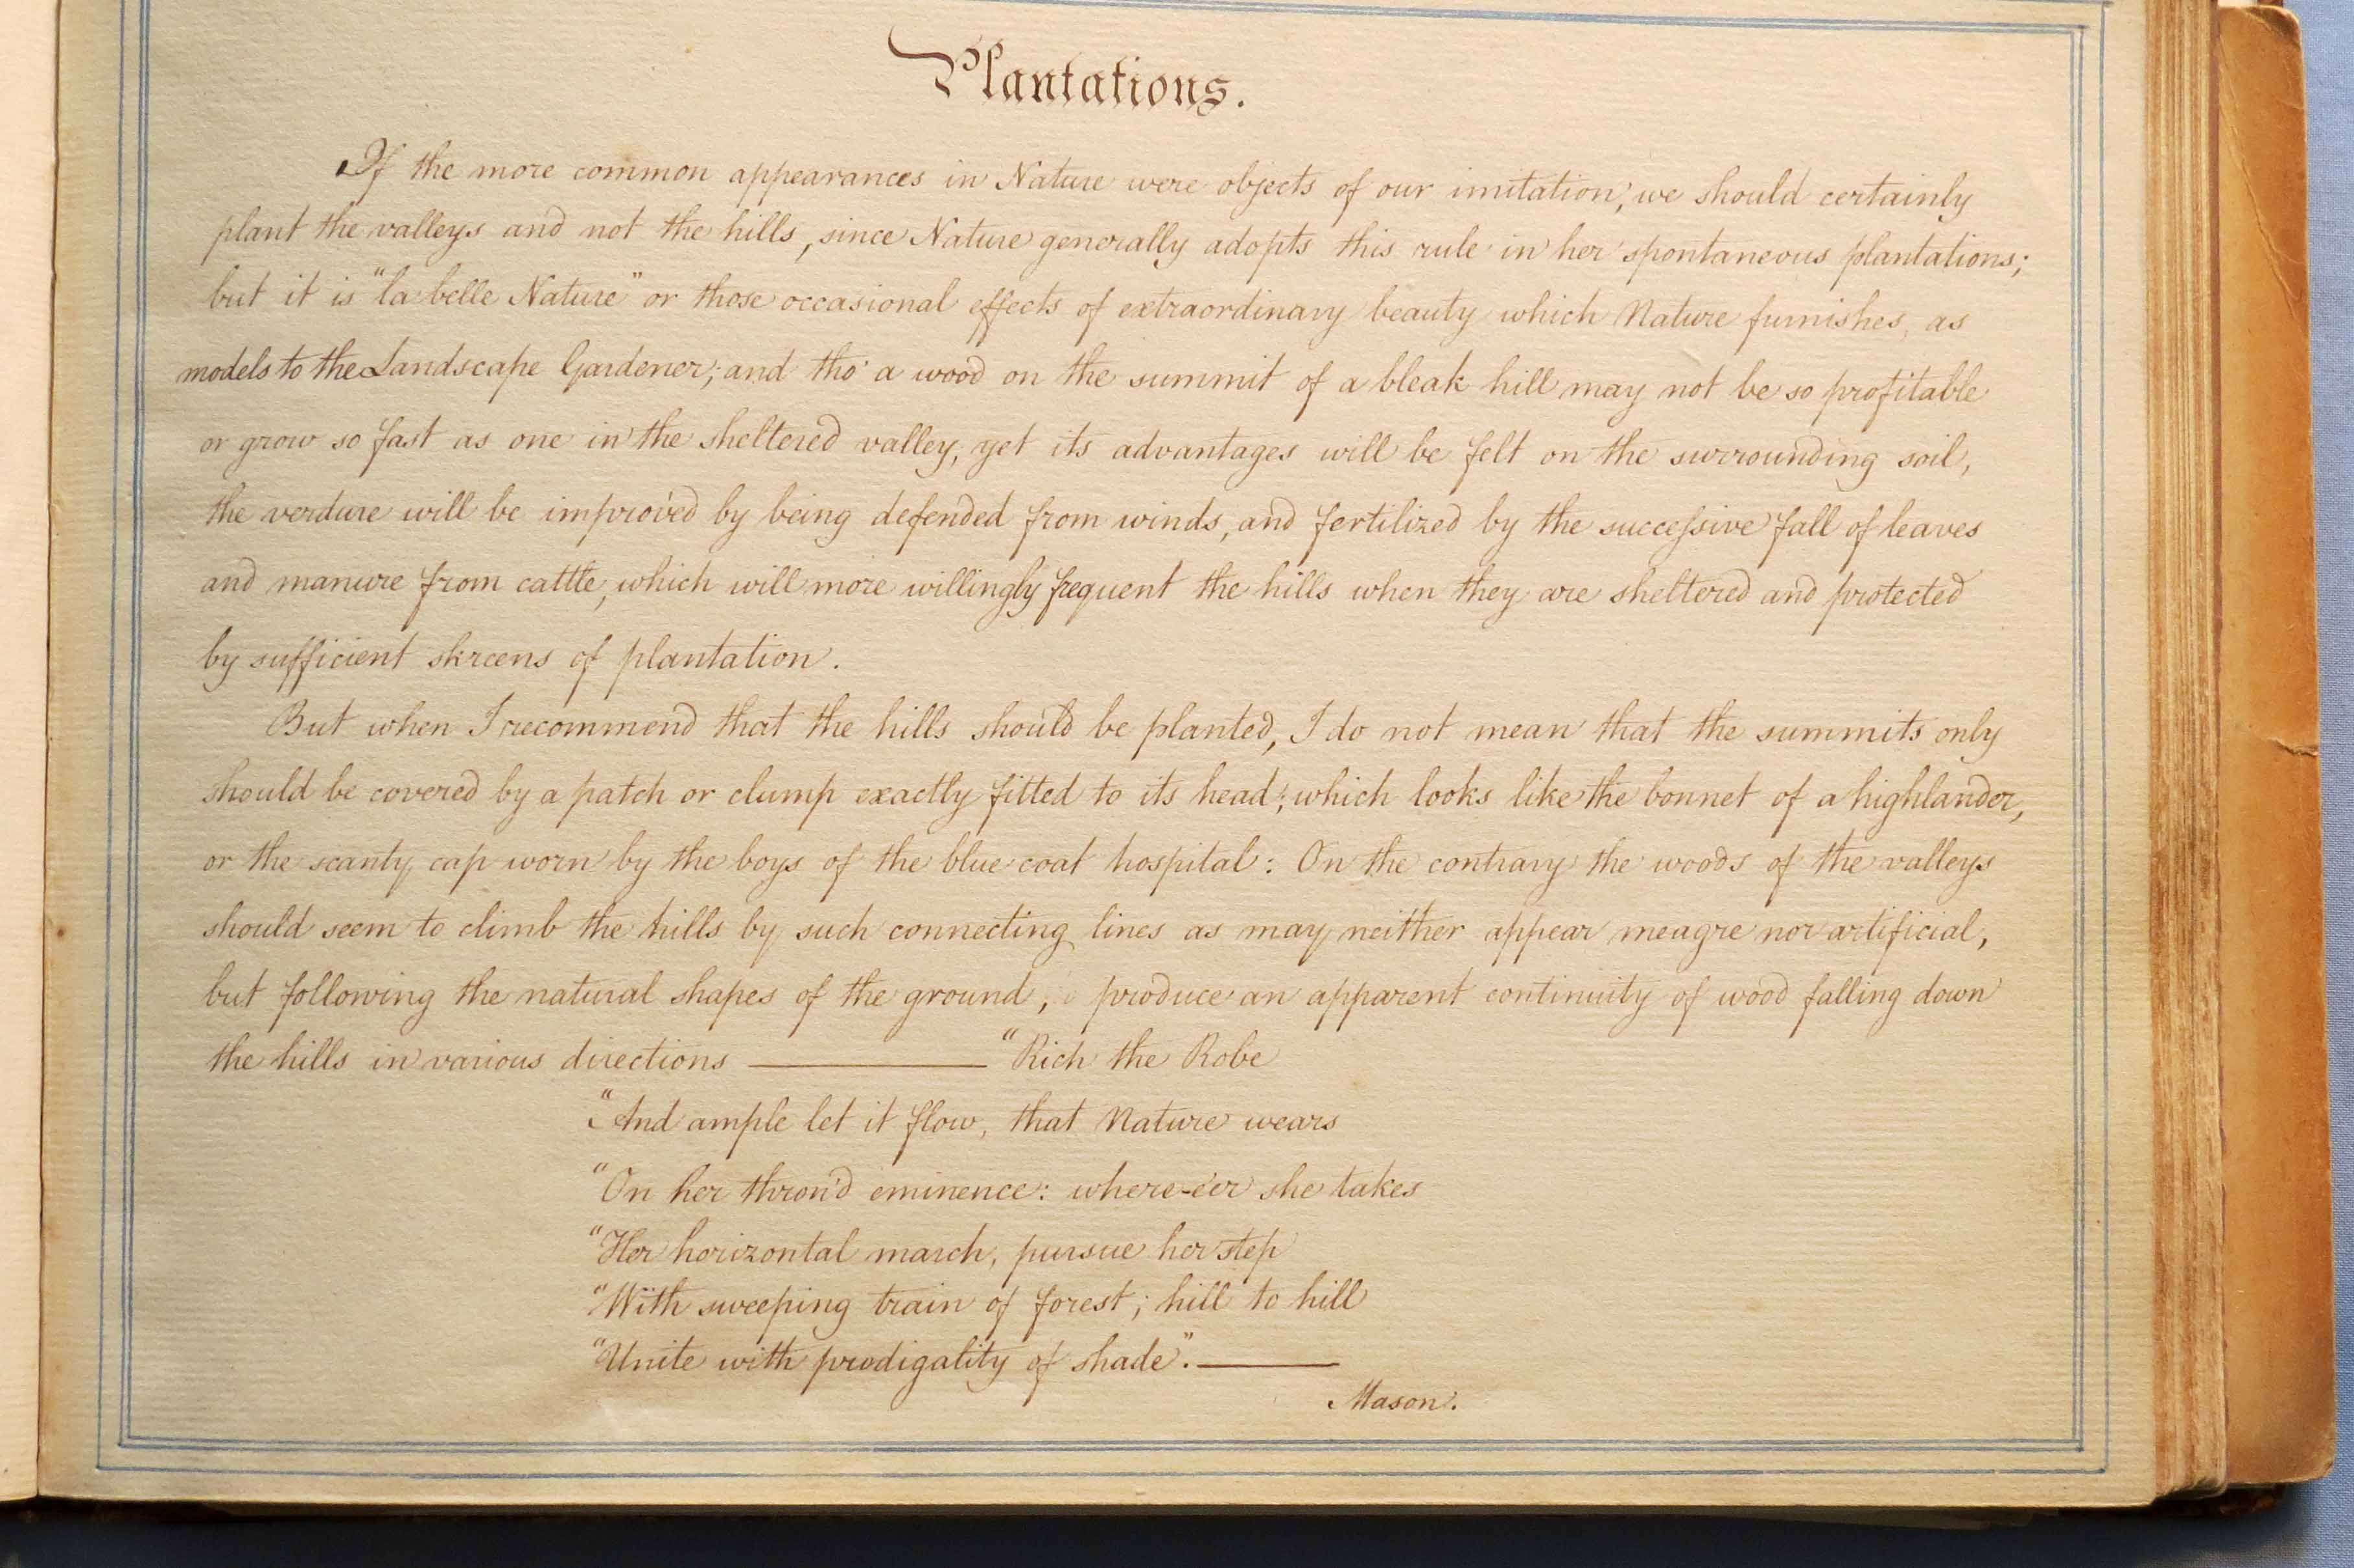 Plantations.
If the more common appearances in Nature were objects of our imitation, we should certainly
plant the valleys and not the hills, since Nature generally adopts this rule in her spontaneous plantations;
but it is "la belle Nature" or those occasional effects of extraordinary beauty which Nature furnishes, as
models to the Landscape Gardener; and tho' a wood on the summit of a bleak hill may not be so profitable
or grow so fast as one in the sheltered valley, yet its advantages will be felt on the surrounding soil,
the verdure will be improv'd by being defended from winds, and fertilized by the succeſsive fall of leaves
and manure from cattle, which will more willingly frequent the hills when they are sheltered and protected
by sufficient skreens of plantation.
But when I recommend that the hills should be planted, I do not mean that the summits only
should be covered by a patch or clump exactly fitted to its head; which looks like the bonnet of a highlander,
or the scanty cap worn by the boys of the blue coat hospital: On the contrary the woods of the valleys
should seem to climb the hills by such connecting lines as may neither appear meagre nor artificial,
but following the natural shapes of the ground, produce an apparent continuity of wood falling down
the hills in various directions ——— "Rich the Robe
"And ample let it flow, that Nature wears
"On her thron'd eminence: where-e'er she takes
"Her horizontal march, pursue her step
"With sweeping train of forest; hill to hill
"Unite with prodigality of shade". ———
Mason.